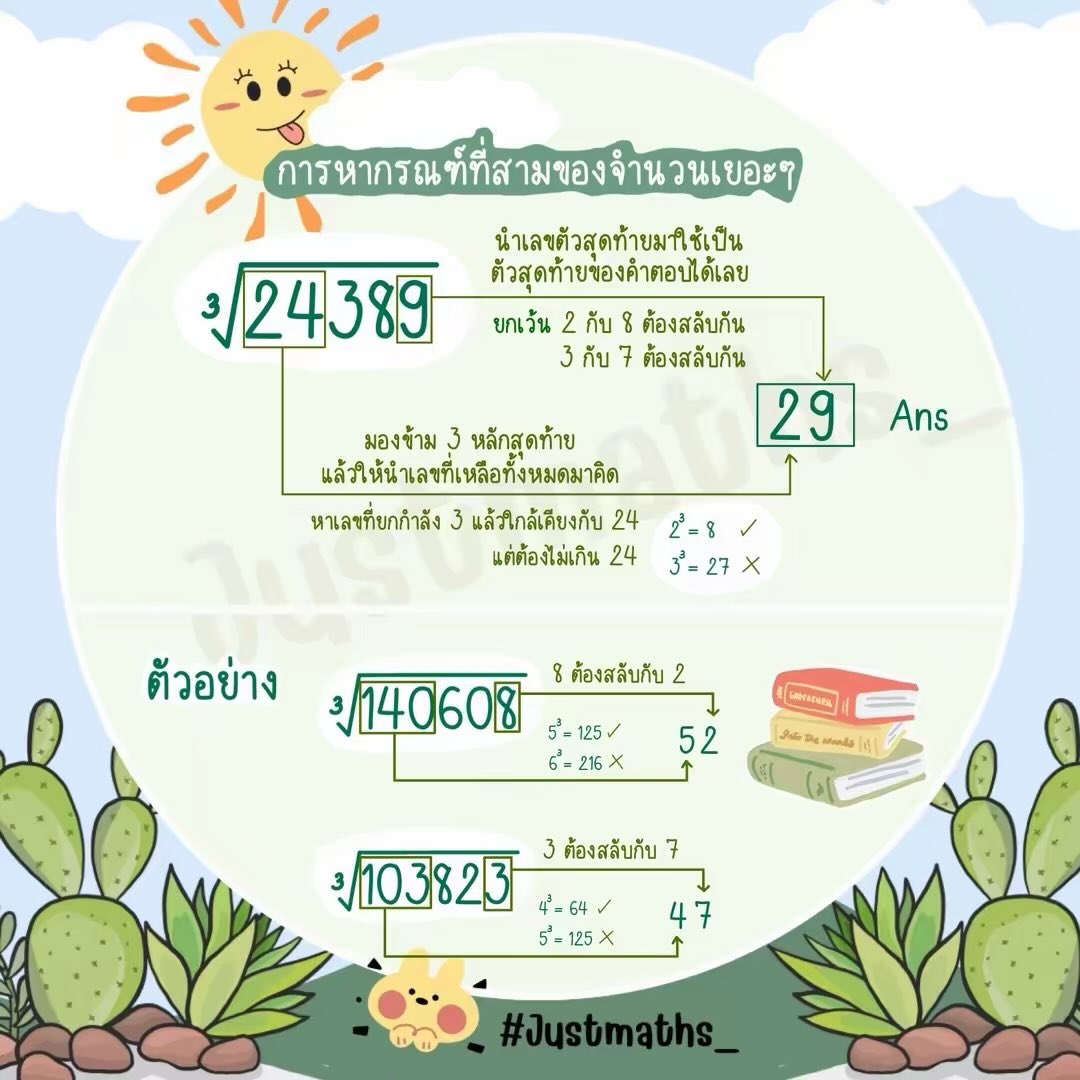 การหากรณฑ์ที่สามของจำนวนเยอะๆ
นำเลขตัวสุดท้ายมาใช้เป็น
ตัวสุดท้ายของคำตอบได้เลย
∛24389
ยกเว้น 2 กับ 8 ต้องสลับกัน
3 กับ 7 ต้องสลับกัน
29 Ans
มองข้าม 3 หลักสุดท้าย
แล้วให้นำเลขที่เหลือทั้งหมดมาคิด
หาเลขที่ยกกำลัง 3 แล้วใกล้เคียงกับ 24
แต่ต้องไม่เกิน 24
2³ = 8 ✓
3³ = 27 ✗
Justmaths_
ตัวอย่าง
∛140608
8 ต้องสลับกับ 2
5³ = 125 ✓
6³ = 216 ✗
52
∛103823
3 ต้องสลับกับ 7
4³ = 64 ✓
5³ = 125 ✗
47
#Justmaths_